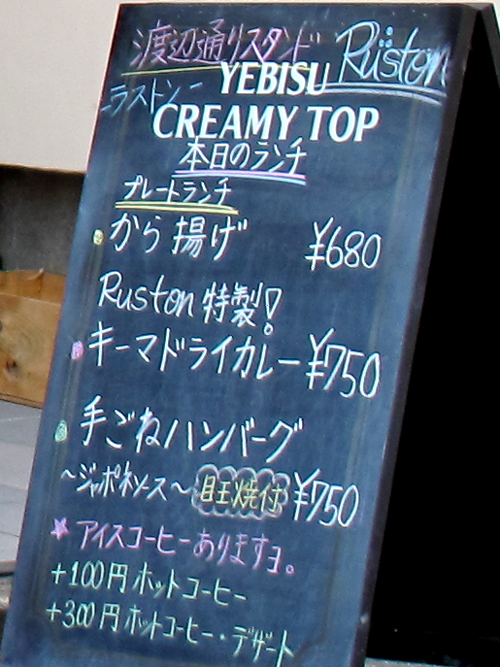 渡辺通りスタンド Ruston
YEBISU
ラストソー
CREAMY TOP
本日のランチ
プレートランチ
から揚げ ¥680
Ruston 特製!
キーマドライカレー ¥750
手ごねハンバーグ
〜ジャポネソース〜 目玉焼付 ¥750
★ アイスコーヒーありますヨ。
+100円ホットコーヒー
+300円ホットコーヒー・デザート